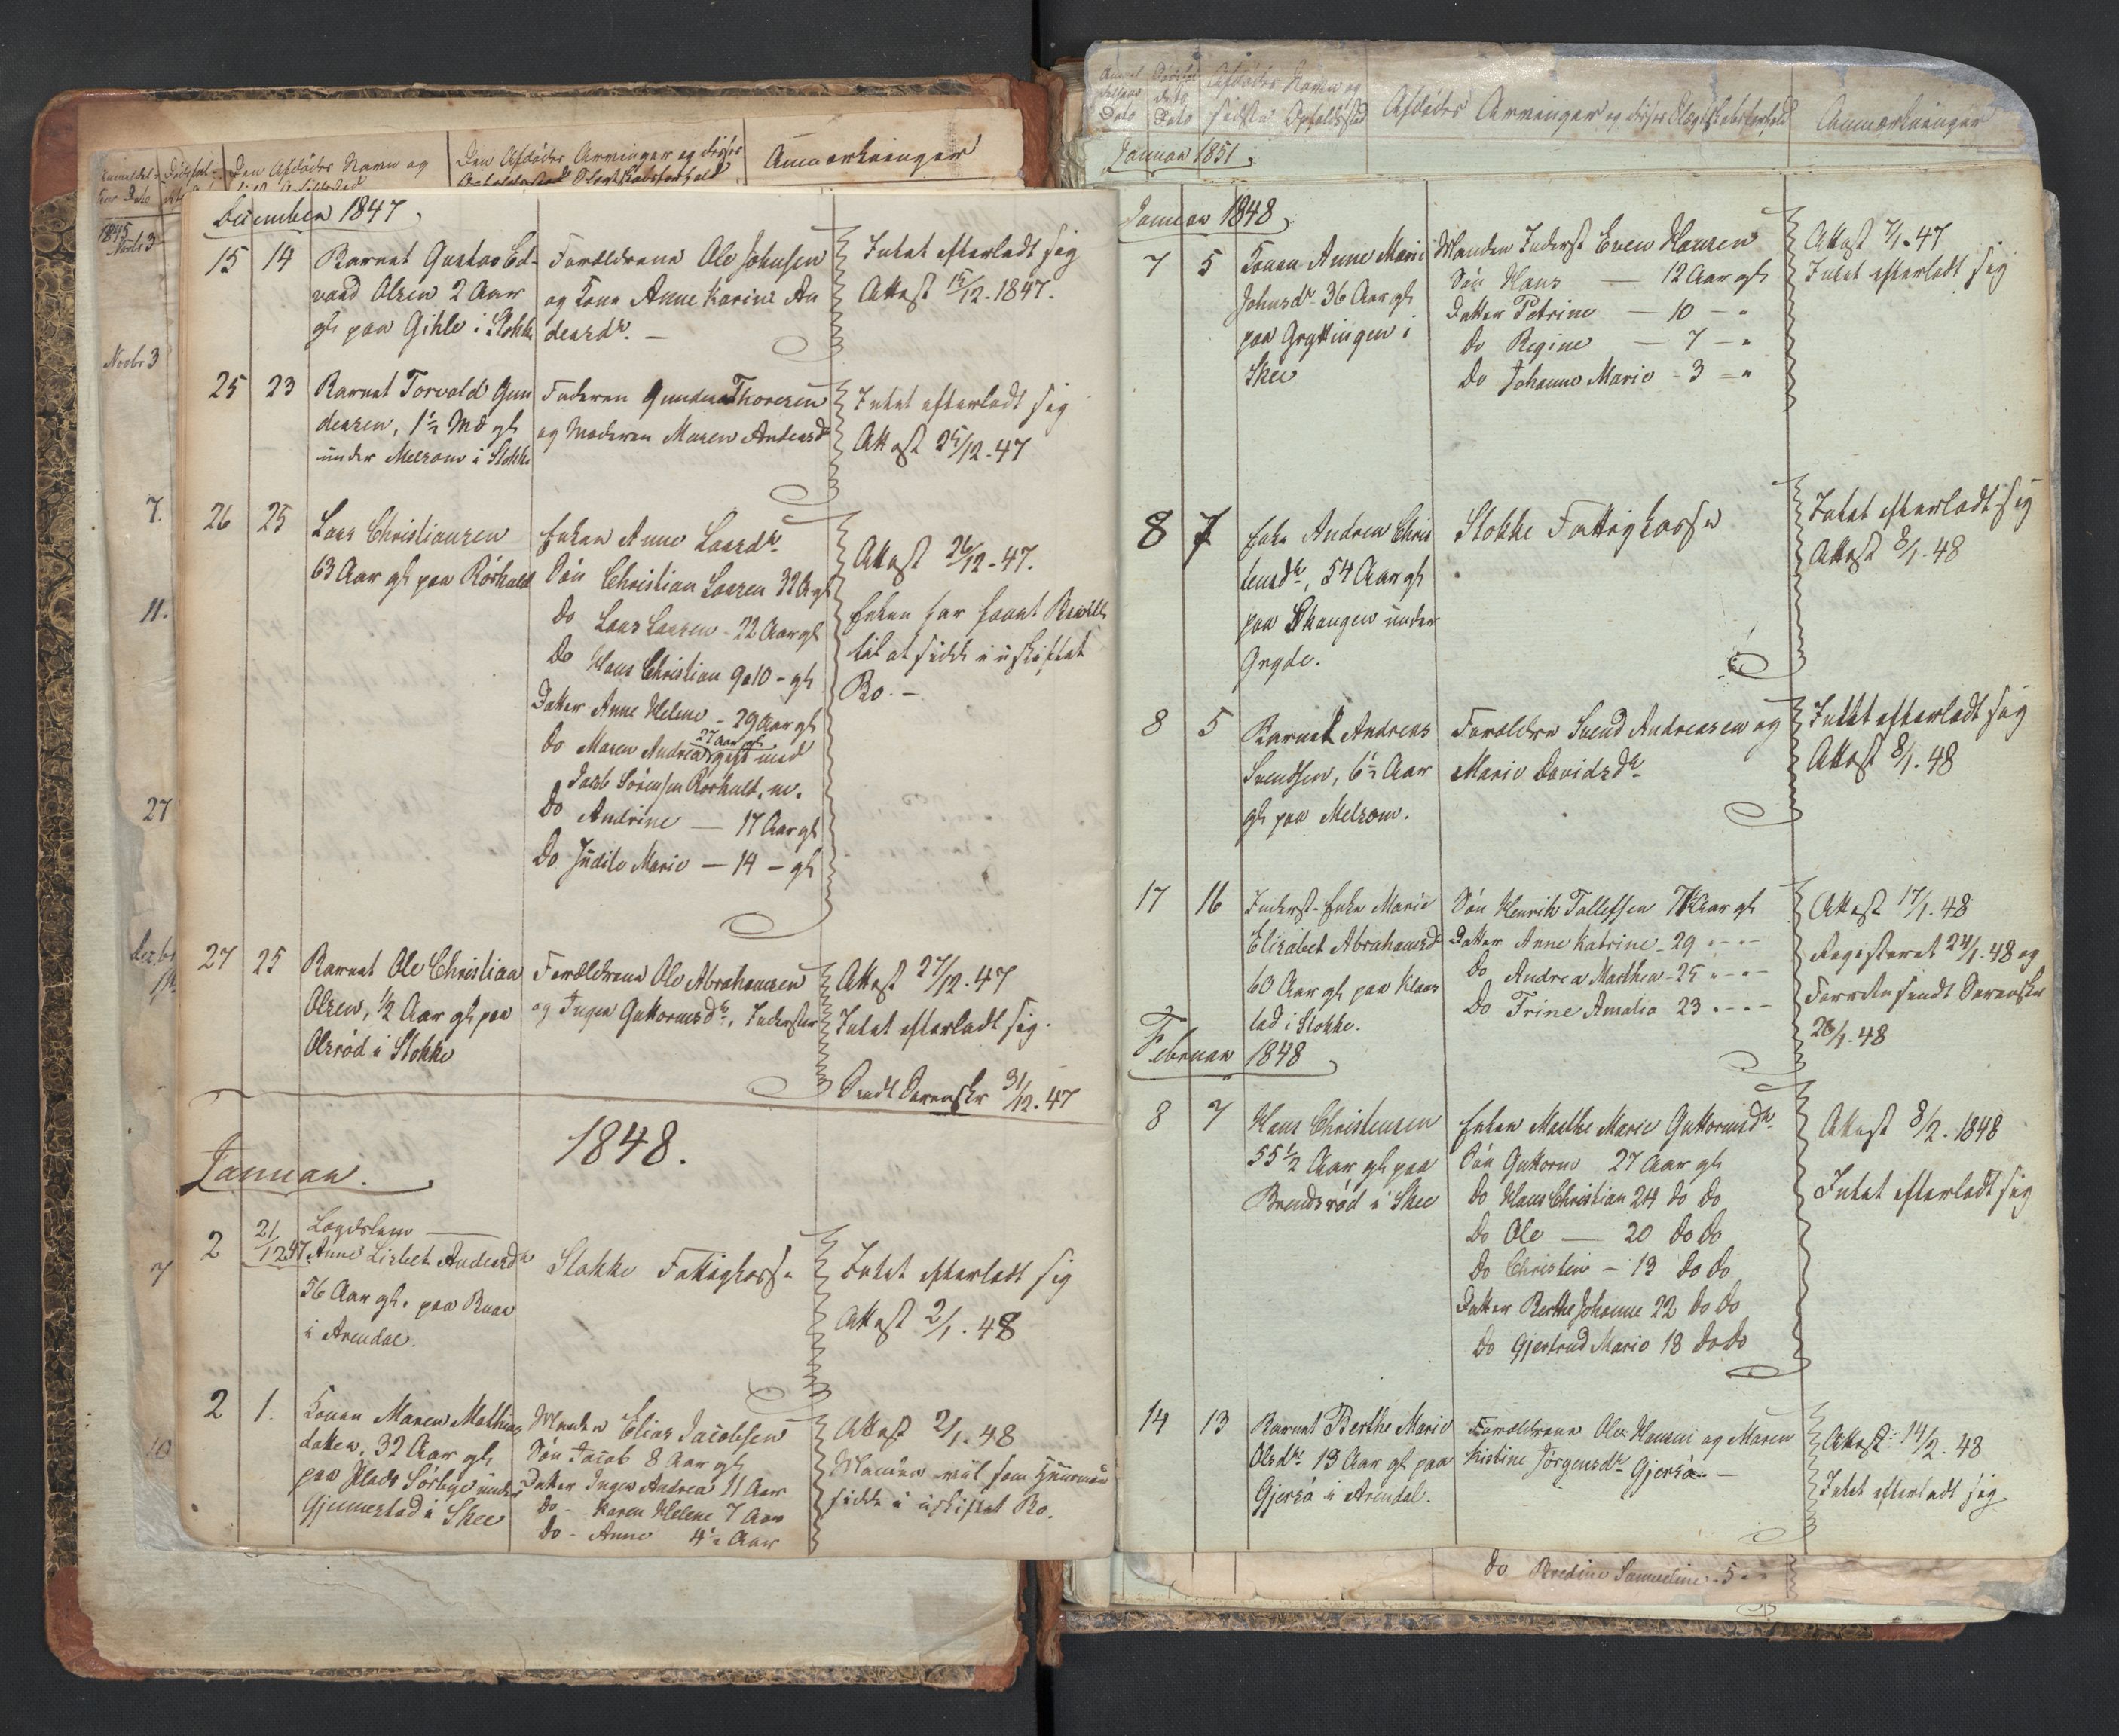 Den Afdødes Navn og
Den Afdødes Arvinger og disses
Anmærkninger
1845
Novbr 3
Novbr 3
7.
11.
27
7
10
December 1847
15 14 Barnet Gustav Ed-
vard Olsen 2 Aar
gl. paa Gihle i Stokke
Forældrene Ole Johnsen
og Kone Anne Karine An
dersdr. —
Intet efterladt sig
Attest 15/12. 1847.
25 23 Barnet Torvald Gun
dersen, 1½ Md gl
under Melsom i Stokke
Faderen Gunder Thoresen
og Moderen Maren Andersdr
Intet efterladt sig
Attest 25/12. 47
26 25 Lars Christiansen
63 Aar gl paa Rørkuld
Enken Anne Larsdr.
Søn Christian Larsen 32 A gl
Do Lars Larsen - 22 Aar gl
Do Hans Christian 9 a 10 - gl
Datter Anne Helene - 29 Aar gl
27 Aar gl
Do Maren Andrea gift med
Jacob Sørensen Rørkuld.
Do Andrine — 17 Aar gl
Do Judite Marie — 14 - gl
Attest 26/12 - 47.
Enken har faaet Bevill.
til at sidde i uskiftet
Bo. —
27 25 Barnet Ole Christian
Olsen, ½ Aar gl paa
Olsrød i Stokke
Forældrene Ole Abrahamsen
og Inger Guttormsdr., Inderster
Attest 27/12. 47
Intet efterladt sig.
Sendt Sorenskr 31/12. 47
1848.
Januar.
2 21/12 47. Lægdslem —
Anne Lisbet Andersdr
56 Aar gl. paa Ruae
i Arendal.
Stokke Fattigkasse
Intet efterladt sig
Attest 2/1. 48
2 1. Konen Maren Mathias
datter, 32 Aar gl
paa Plads Sørbye under
Gjennestad i Skee
Manden Elias Jacobsen
Søn Jacob 8 Aar gl
Datter Inger Andrea 11 Aar
Do - Karen Helene 7 Aar
Do - Anne 4½ Aar
Attest 2/1. 48
Manden vil som Huusmand
sidde i uskiftet Bo.
Afdødes Navn og
sidste Opholdssted
Afdødes Arvinger og disses Slægtskabsforhold
Anmærkninger
Januar 1851
Januar 1848
7 5 Konen Anne Marie
Johnsdr. 36 Aar gl
paa Gryttingen i
Skee
Manden Inderst Even Hansen
Søn Hans — 12 Aar gl
Datter Petrine — 10 — "
Do Regine — 7 — "
Do Johanne Marie - 3 — "
Attest 7/1. 47
Intet efterladt sig
8 7 Enke Andrea Chris
tensdr, 54 Aar gl
paa Skaugen under
Gryde.
Stokke Fattigkasse
Intet efterladt sig
Attest 8/1. 48
8 5 Barnet Andreas
Svendsen, 6½ Aar
gl paa Melsom.
Forældre Svend Andreasen og
Marie Davidsdr
Intet efterladt sig
Attest 8/1. 48
17 16 Inderst-Enke Marie
Elisabet Abrahamsdr
60 Aar gl paa Klaas
tad i Stokke.
Søn Henrik Tollefsen Aar gl
Datter Anne Katrine - 29 " — "
Do Andrea Marthea - 25 " — "
Do Trine Amalia 23 " — "
Attest 17/1. 48
Registeret 24/1. 48 og
Forretn sendt Sorenskr
26/1. 48
Februar 1848
8 7 Hans Christensen
55½ Aar gl paa
Brendsrød i Skee
Enken Marthe Marie Guttormsdr.
Søn Guttorm 27 Aar gl
Do Hans Christian 24 do do
Do Ole — 20 do do
Do Christen — 13 do do
Datter Berthe Johanne 22 do do
Do Gjertrud Marie 18 do do
Attest 8/2. 1848
Intet efterladt sig
14 13 Barnet Berthe Marie
Olsdr. 13 Aar gl paa
Gjersø i Arendal.
Forældrene Ole Hansen og Maren
Kirstine Jørgensdr Gjersø. —
Attest: 14/2. 48
Intet efterladt sig
Do Bredine Samueline - 5 -